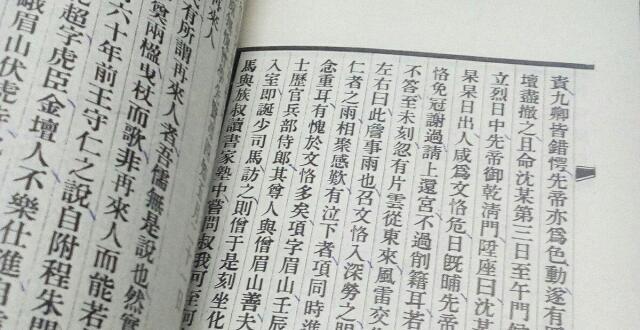 責九卿皆錯愕先帝亦爲色動遂有
壇盡撤之且命沈某第三日至午門
立烈日中先帝御乾清門陞座曰沈
杲杲日出人咸爲文恪危日既晡先帝
恪免冠謝過請上還宮不過削籍耳若
不答至未刻忽有片雲從東來風雷交
左右曰此詹事雨也召文恪入深勞之
仁者之雨相聚感歎有泣下者項同時進
念重耳有愧於文恪多矣項字眉山壬辰
士歷官兵部侍郎其尊人與僧眉山善夫
入室即誕少司馬訪之則僧于是刻坐化
馬與族叔讀書家塾中嘗問叔我可至何
再來人
代有所謂再來人者吾儒無是說也然實
奠兩楹曳杖而歌非再來人而能若
六十年前王守仁之說自附程朱門
超字虎臣金壇人不樂仕進自
峨眉山伏虎寺